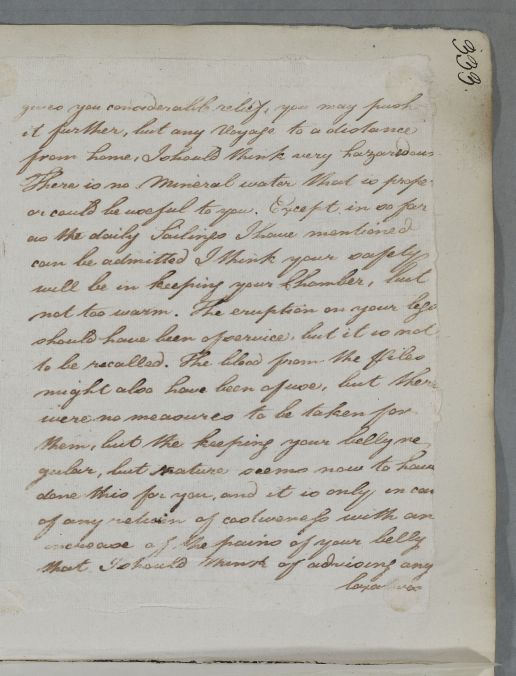 333.
gives you considerable relief, you may push
it further, but any Voyage to a distance
from home, I should think very hazardous
There is no Mineral water that is prope
or could be useful to you. Except in so far
as the daily Sailings I have mentioned
can be admitted I think your safety
will be in keeping your Chamber, but
not too warm. The eruption on your legs
should have been of service, but it is not
to be recalled. The blood from the Piles
might also have been of use, but there
were no measures to be taken for
them, but the keeping your belly re
gular, but Nature seems now to have
done this for you, and it is only in case
of any return of costiveness with an
increase of the pains of your belly
that I should think of advising any
laxatives